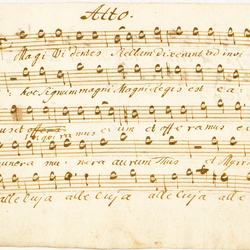 Alto.
Magi Videntes Stellam dixerunt ad invi
: hoc signum magni Magni Regis est e a
us et offera
quiramus eum et offeramus e
munera mu: nera aurum thus et Myrrh
alleluja alleluja alleluja alle